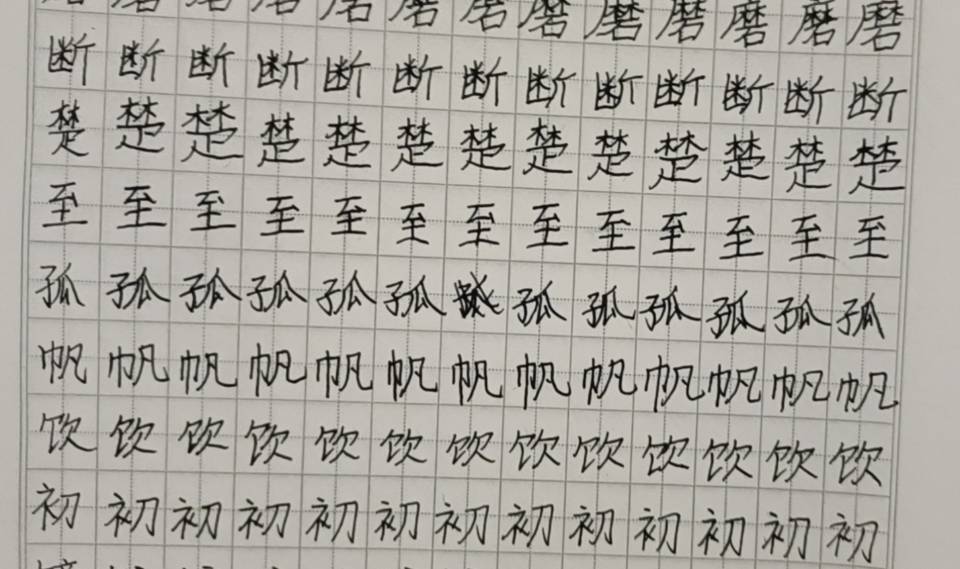 磨 磨 磨 磨 磨 磨 磨 磨 磨 磨 磨 磨 磨
断 断 断 断 断 断 断 断 断 断 断 断 断
楚 楚 楚 楚 楚 楚 楚 楚 楚 楚 楚 楚 楚
至 至 至 至 至 至 至 至 至 至 至 至 至
孤 孤 孤 孤 孤 孤 孤 孤 孤 孤 孤 孤
帆 帆 帆 帆 帆 帆 帆 帆 帆 帆 帆 帆 帆
饮 饮 饮 饮 饮 饮 饮 饮 饮 饮 饮 饮 饮
初 初 初 初 初 初 初 初 初 初 初 初 初